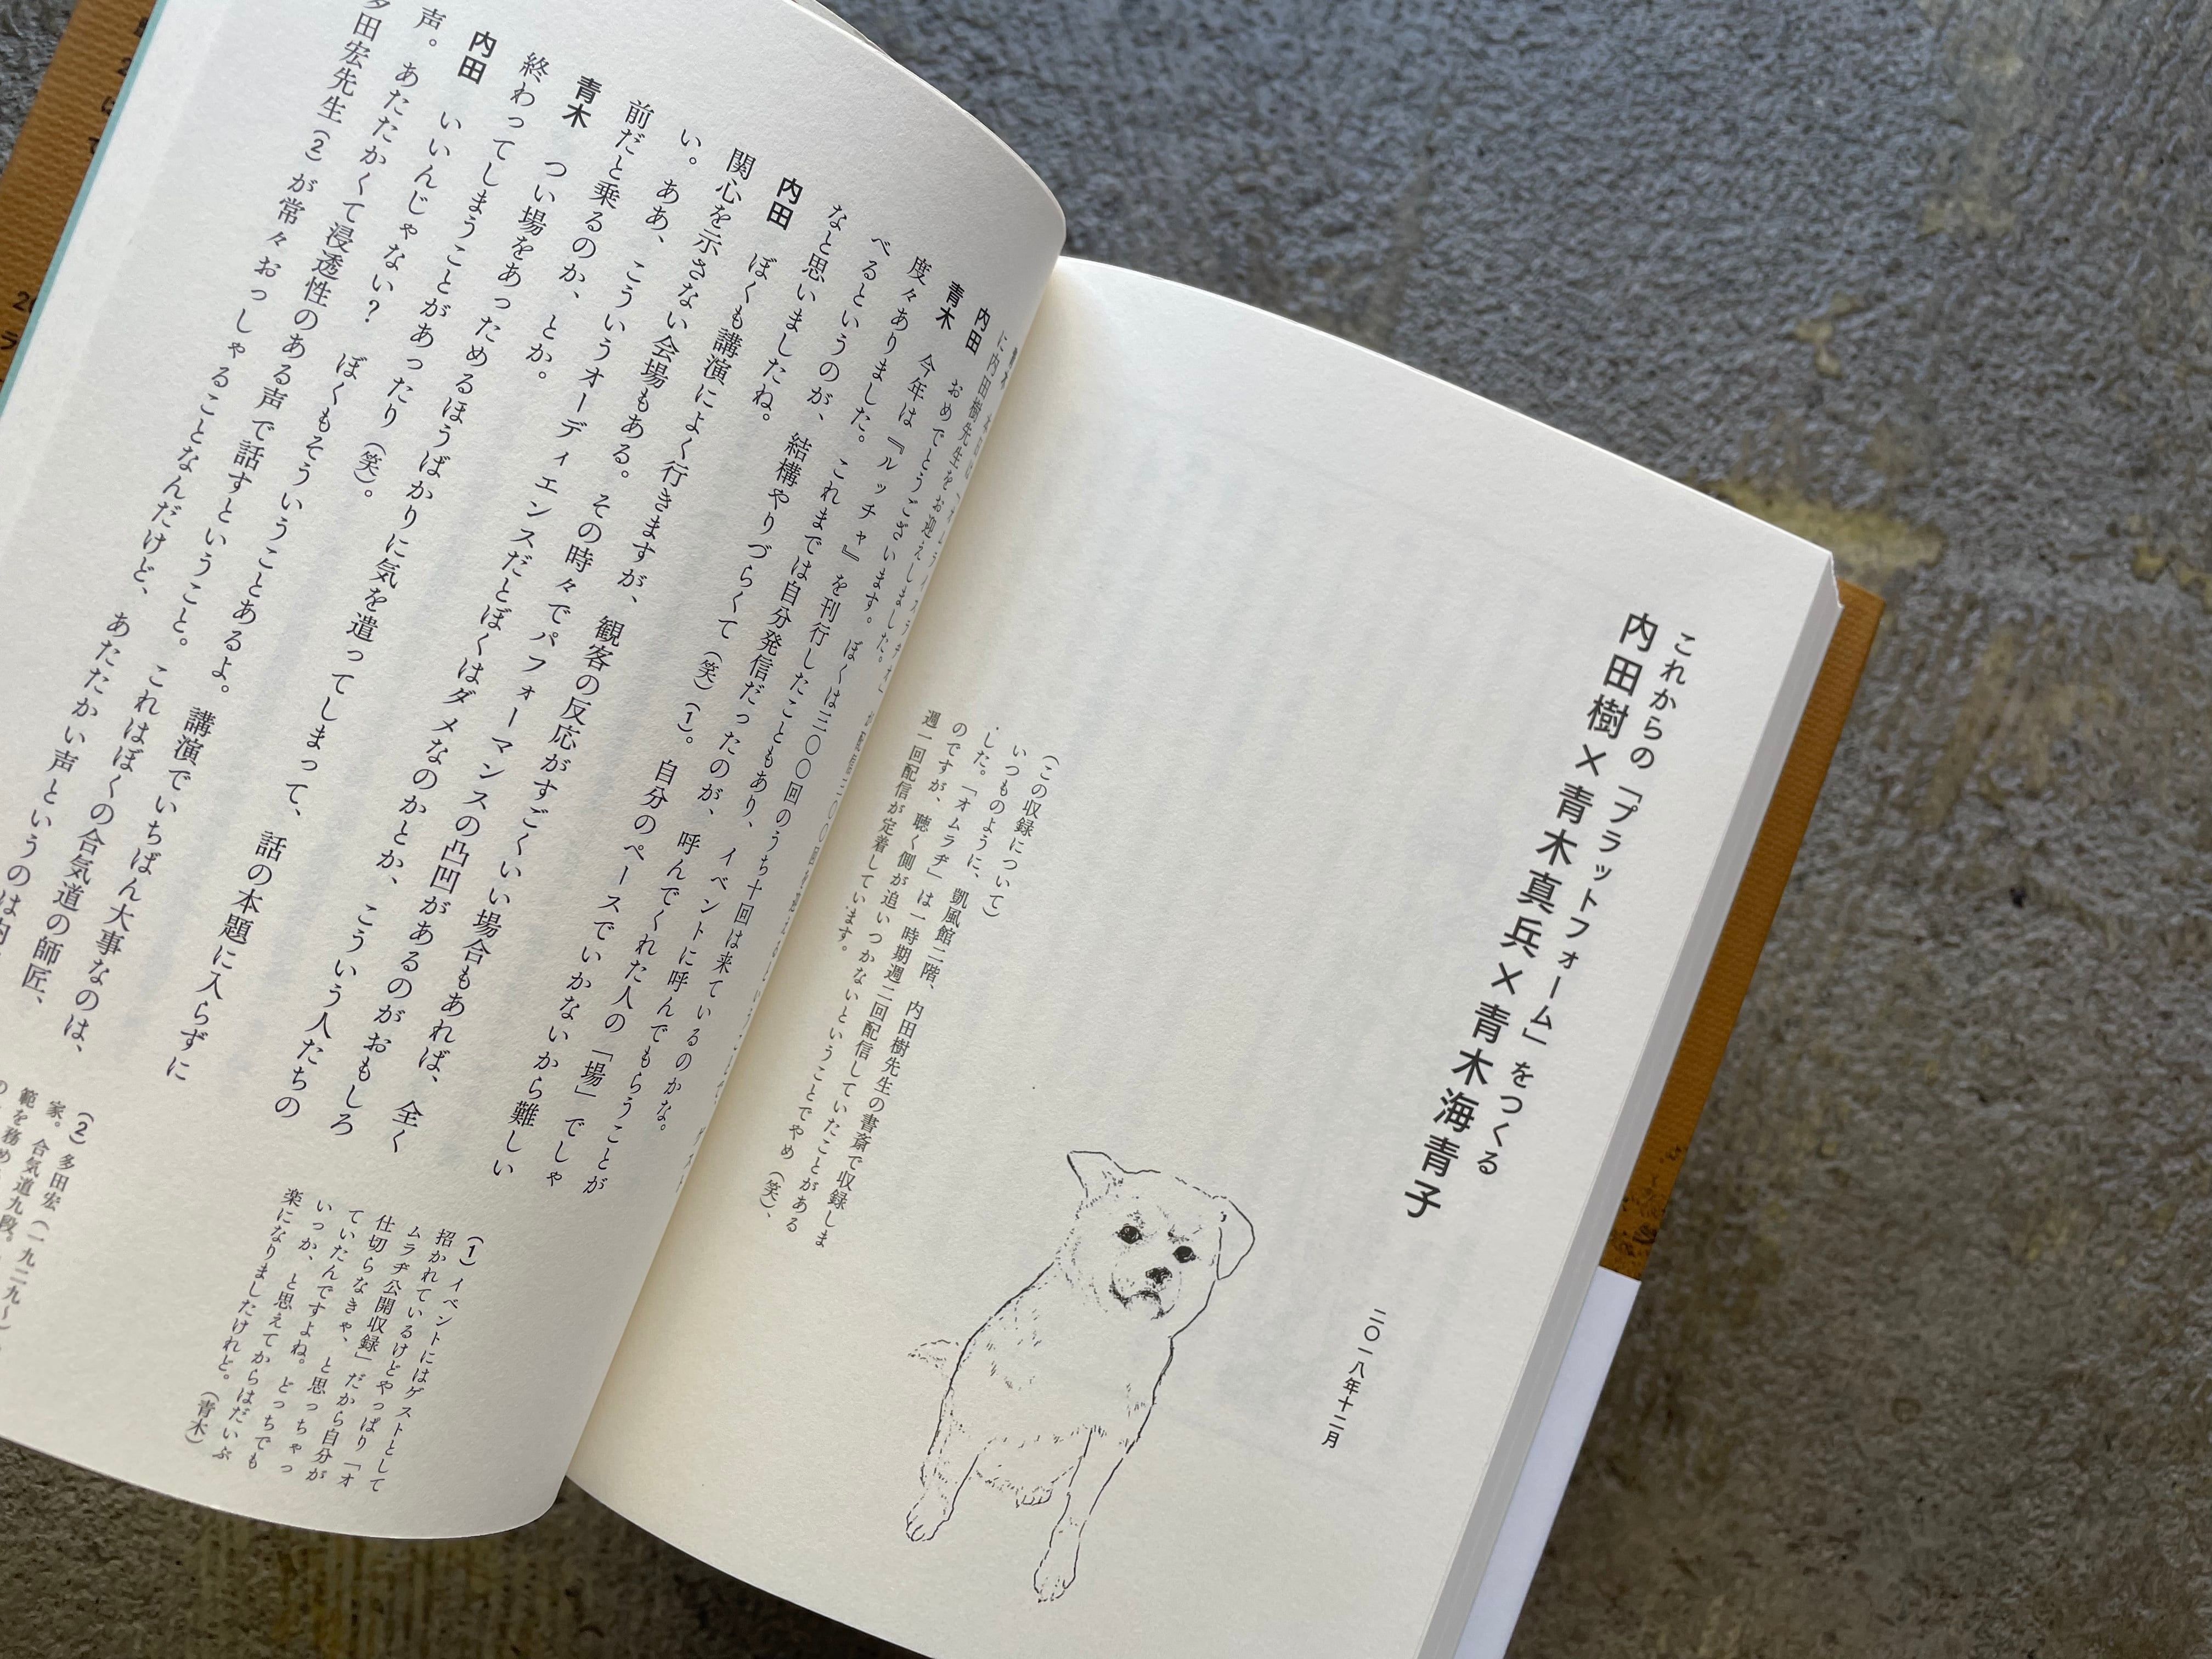 これからの「プラットフォーム」をつくる
内田樹×青木真兵×青木海青子
二〇一八年十二月
（この収録について）
いつものように、凱風館二階、内田樹先生の書斎で収録しま
した。「オムラヂ」は一時期週二回配信していたことがある
のですが、聴く側が追いつかないということでやめ（笑）、
週一回配信が定着しています。
に内田樹先生をお迎えしました。
内田　おめでとうございます。
青木　今年は『ルッチャ』を刊行したこともあり、イベントに呼んでもらうことが
度々ありました。これまでは自分発信だったのが、呼んでくれた人の「場」でしゃ
べるというのが、結構やりづらくて（笑）（1）。自分のペースでいかないから難しい
なと思いましたね。
内田　ぼくも講演によく行きますが、観客の反応がすごくいい場合もあれば、全く
関心を示さない会場もある。その時々でパフォーマンスの凸凹があるのがおもしろ
い。ああ、こういうオーディエンスだとぼくはダメなのかとか、こういう人たちの
前だと乗るのか、とか。
青木　つい場をあっためるほうばかりに気を遣ってしまって、話の本題に入らずに
終わってしまうことがあったり（笑）。
内田　いいんじゃない？　ぼくもそういうことあるよ。講演でいちばん大事なのは、
声。あたたかくて浸透性のある声で話すということ。これはぼくの合気道の師匠、
多田宏先生（2）が常々おっしゃることなんだけど、あたたかい声というのは内
（1）イベントにはゲストとして
招かれているけどやっぱり「オ
ムラヂ公開収録」だから自分が
仕切らなきゃ、と思っちゃっ
ていたんですよね。どっちでも
いっか、と思えてからはだいぶ
楽になりましたけれど。（青木）
（2）多田宏（一九二九〜）
家。合気道九段。
範を務め